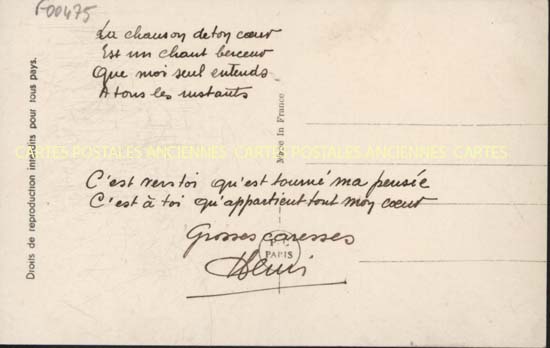 F00475
La chanson de ton cœur
Est un chant berceur
Que moi seul entends
A tous les instants
Droits de reproduction interdits pour tous pays.
Made in France
CARTES POSTALES ANCIENNES CARTES POSTALES ANCIENNES CARTES
C'est vers toi qu'est tourné ma pensée
C'est à toi qu'appartient tout mon cœur
Grosses caresses
PARIS
Henri